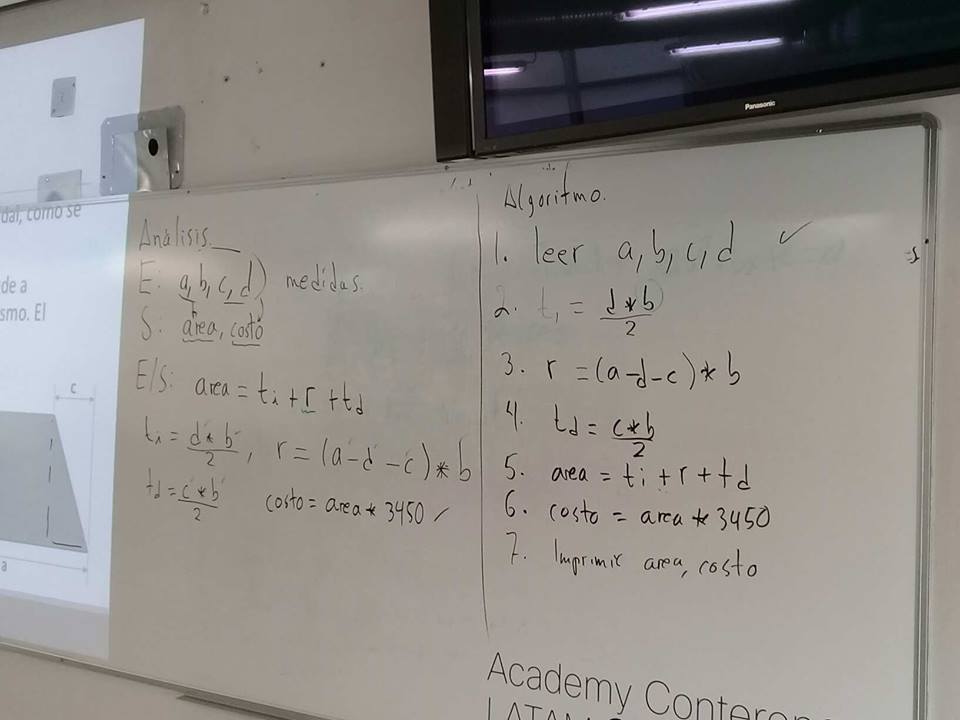 dal, como se
de a
smo. El
c
a
Análisis.
E: a, b, c, d) medidas.
S: área, costo
E/S: area = ti + r + td
ti = d * b / 2, r = (a - d - c) * b
td = c * b / 2 costo = area * 3450 ✓
Panasonic
Algoritmo.
1. leer a, b, c, d ✓
2. t1 = d * b / 2
3. r = (a - d - c) * b
4. td = c * b / 2
5. area = ti + r + td
6. costo = area * 3450
7. Imprimir area, costo
Academy Conteren
LATAM